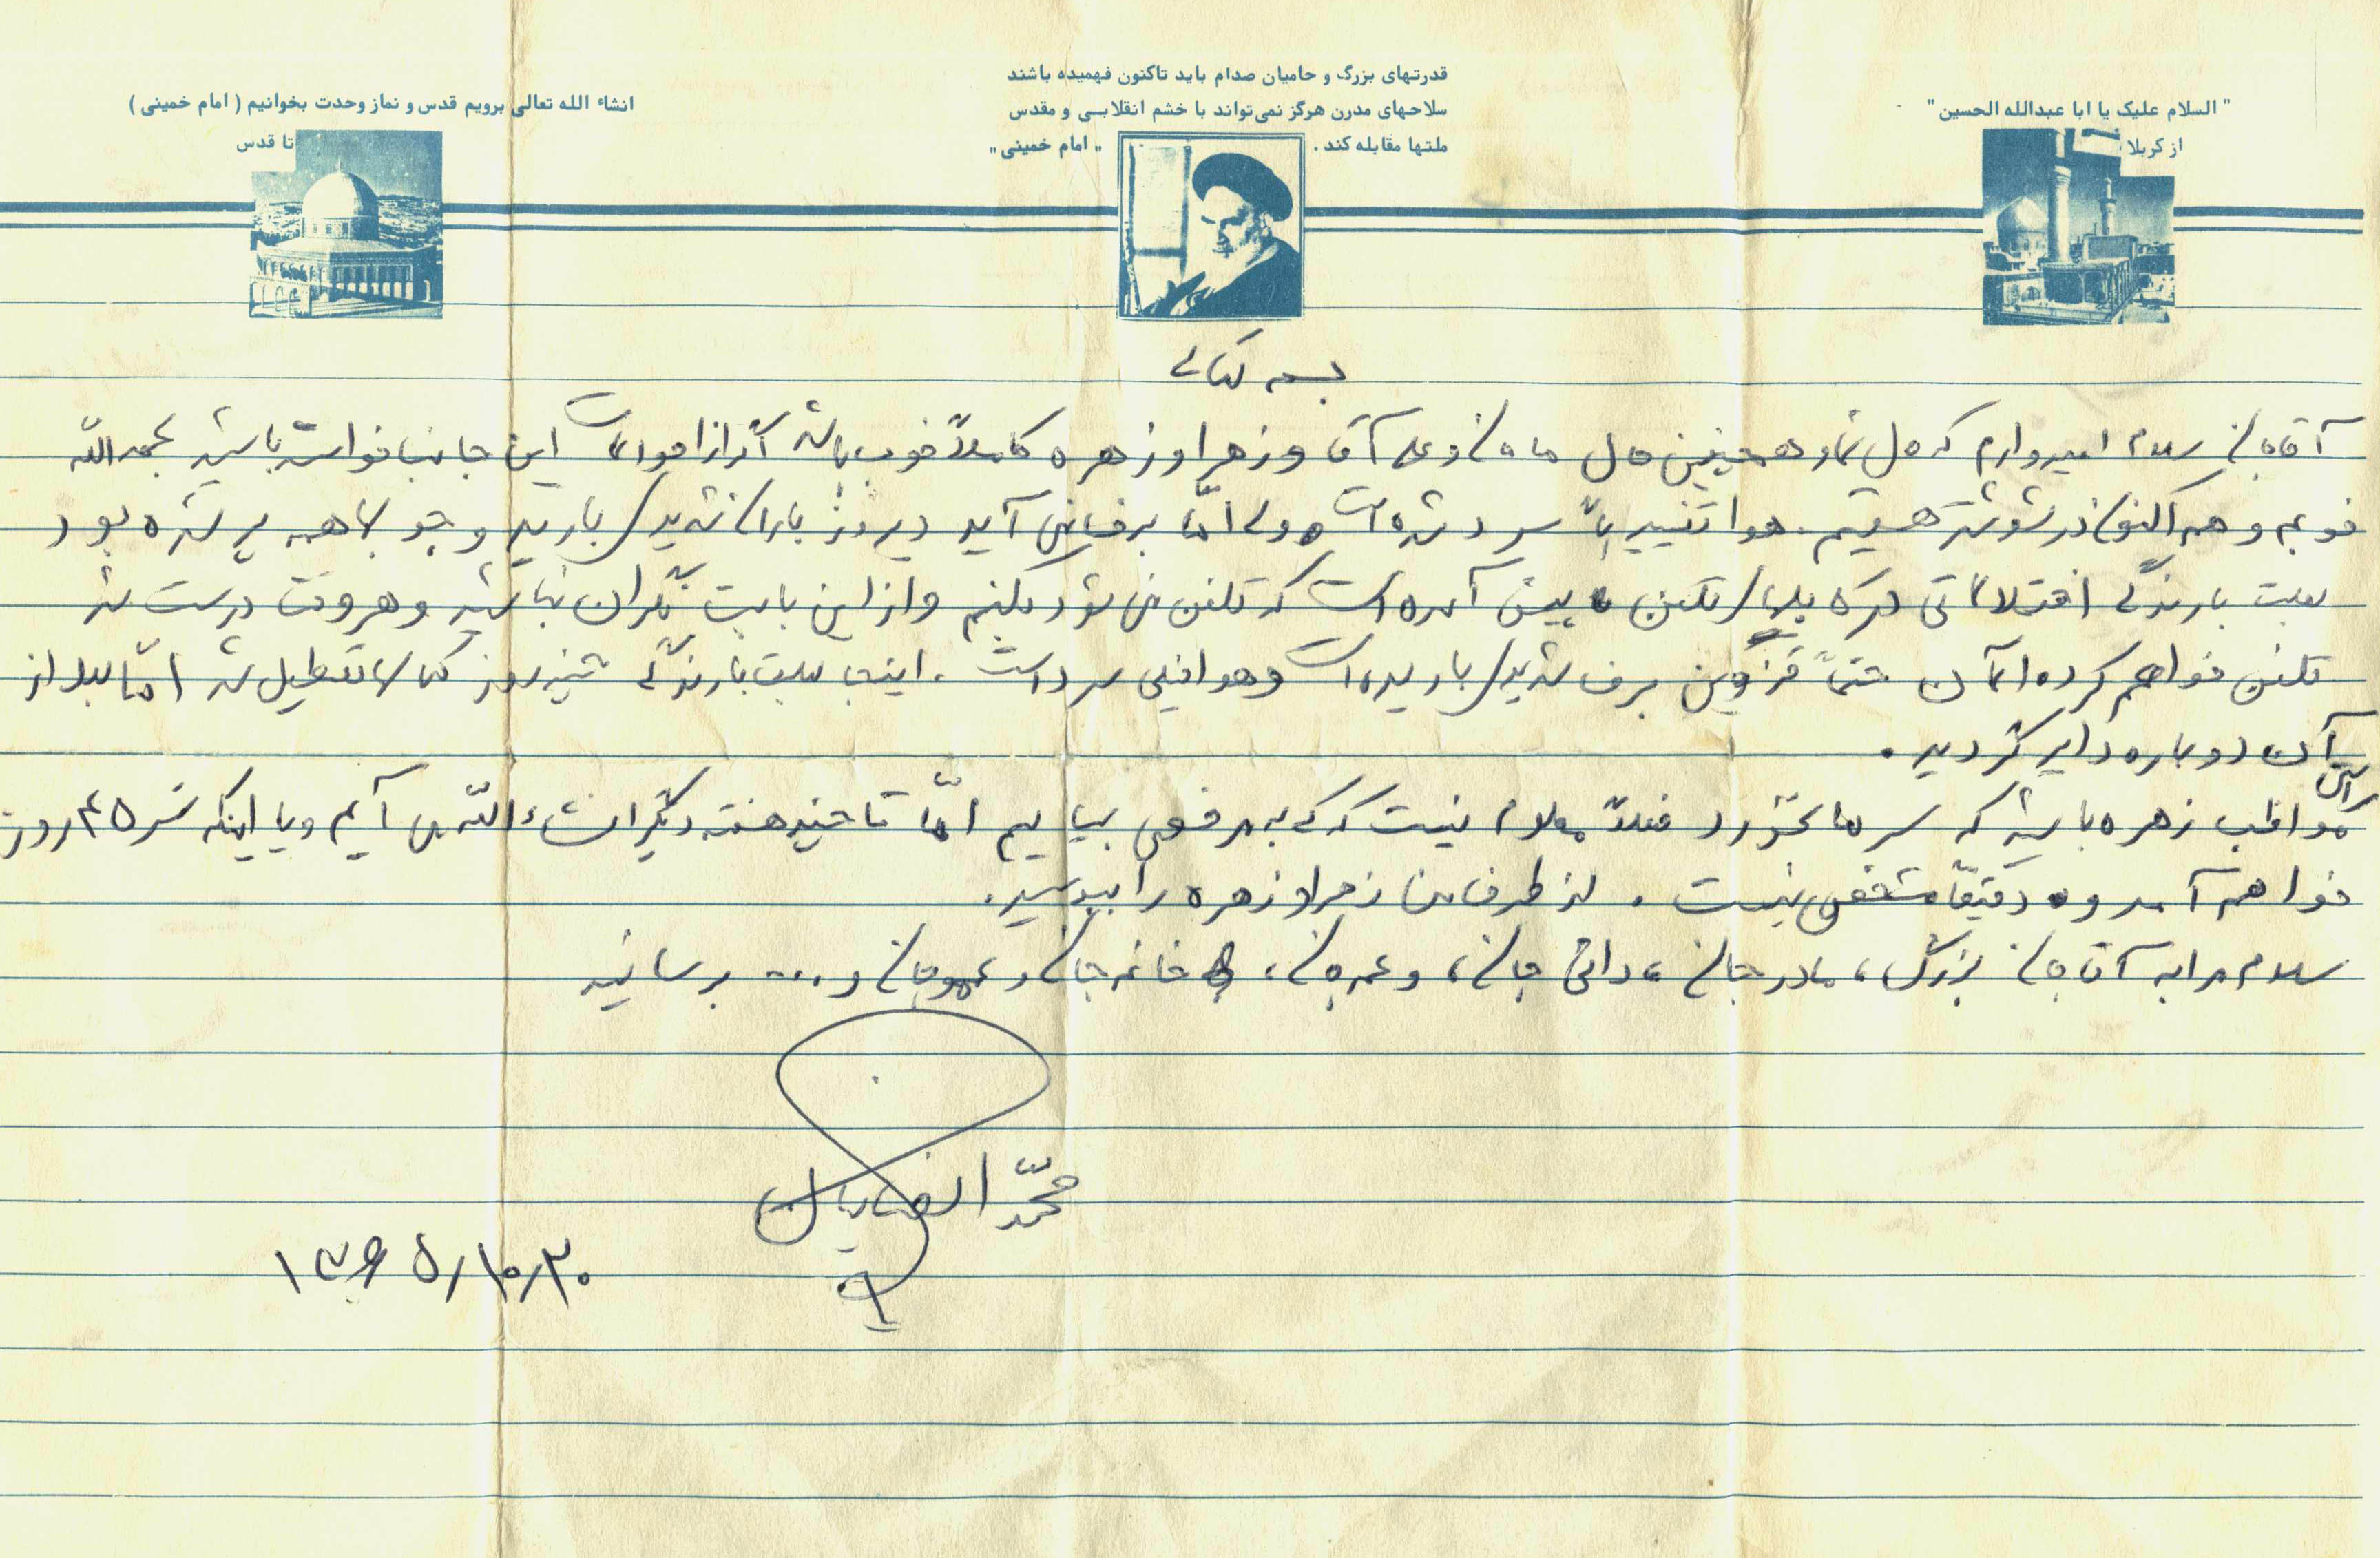 "السلام علیک یا ابا عبدالله الحسین"
از کربلا
قدرتهای بزرگ و حامیان صدام باید تاکنون فهمیده باشند
سلاحهای مدرن هرگز نمی‌تواند با خشم انقلابی و مقدس
ملتها مقابله کند . "امام خمینی"
انشاء الله تعالی برویم قدس و نماز وحدت بخوانیم ( امام خمینی )
تا قدس
بسمه تعالی
آقاجان سلام امیدوارم که حال شما و همچنین حال مامان و علی آقا و زهرا و زهره کاملاً خوب باشد اگر از احوالات این جانب خواسته باشید بحمدالله
خوبم و هم اکنون در شوشتر هستیم. هوا تقریباً سرد شده است ولی امّا برف نمی آید دیروز باران شدیدی بارید و جوبها همه پر شده بود
بعلت بارندگی اختلالاتی در تلفن پیش آمده است که تلفن نمی شود بکنم و از این بابت نگران نباشید و هر وقت درست شد
تلفن خواهم کرد الآن حتماً قزوین برف شدیدی باریده است و هوا خیلی سرد است . اینجا بعلت بارندگی چند روز کلاسها تعطیل شد امّا بعد از
آن دوباره دایر گردید .
راستی مواظب زهره باشید که سرما نخورد فعلاً معلوم نیست که کی به مرخصی بیایم امّا تا چند هفته دیگر انشاءالله می آیم و یا اینکه سر ۴۵ روز
خواهم آمد و دقیقاً مشخص نیست . از طرف من زهرا و زهره را ببوسید .
سلام مرا به آقاجان بزرگ ، مادرجان ، دائی جان ، و عمه جان ، خانم جان و عموجان و .... برسانید
محمّد
۱۳۶۵/۱۰/۲۰